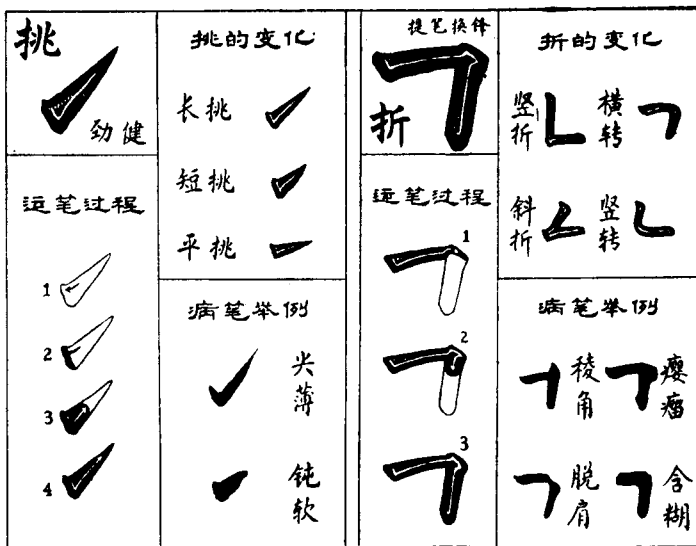 挑
劲健
运笔过程
1
2
3
4
挑的变化
长挑
短挑
平挑
病笔举例
尖薄
钝软
提笔换锋
折
运笔过程
1
2
3
折的变化
竖折
横转
斜折
竖转
病笔举例
棱角
瘿瘤
脱肩
含糊